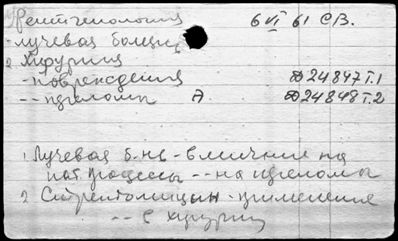 Рентгенология 6 VI 61 СВ.
- лучевая болезнь
2 Хирургия
- повреждения Д24847 т.1
- - переломы А Д24848 т.2
1 Лучевая б-нь - влияние на
пат. процессы - - на переломы
2 Стрептомицин - применение
- - в хирургии